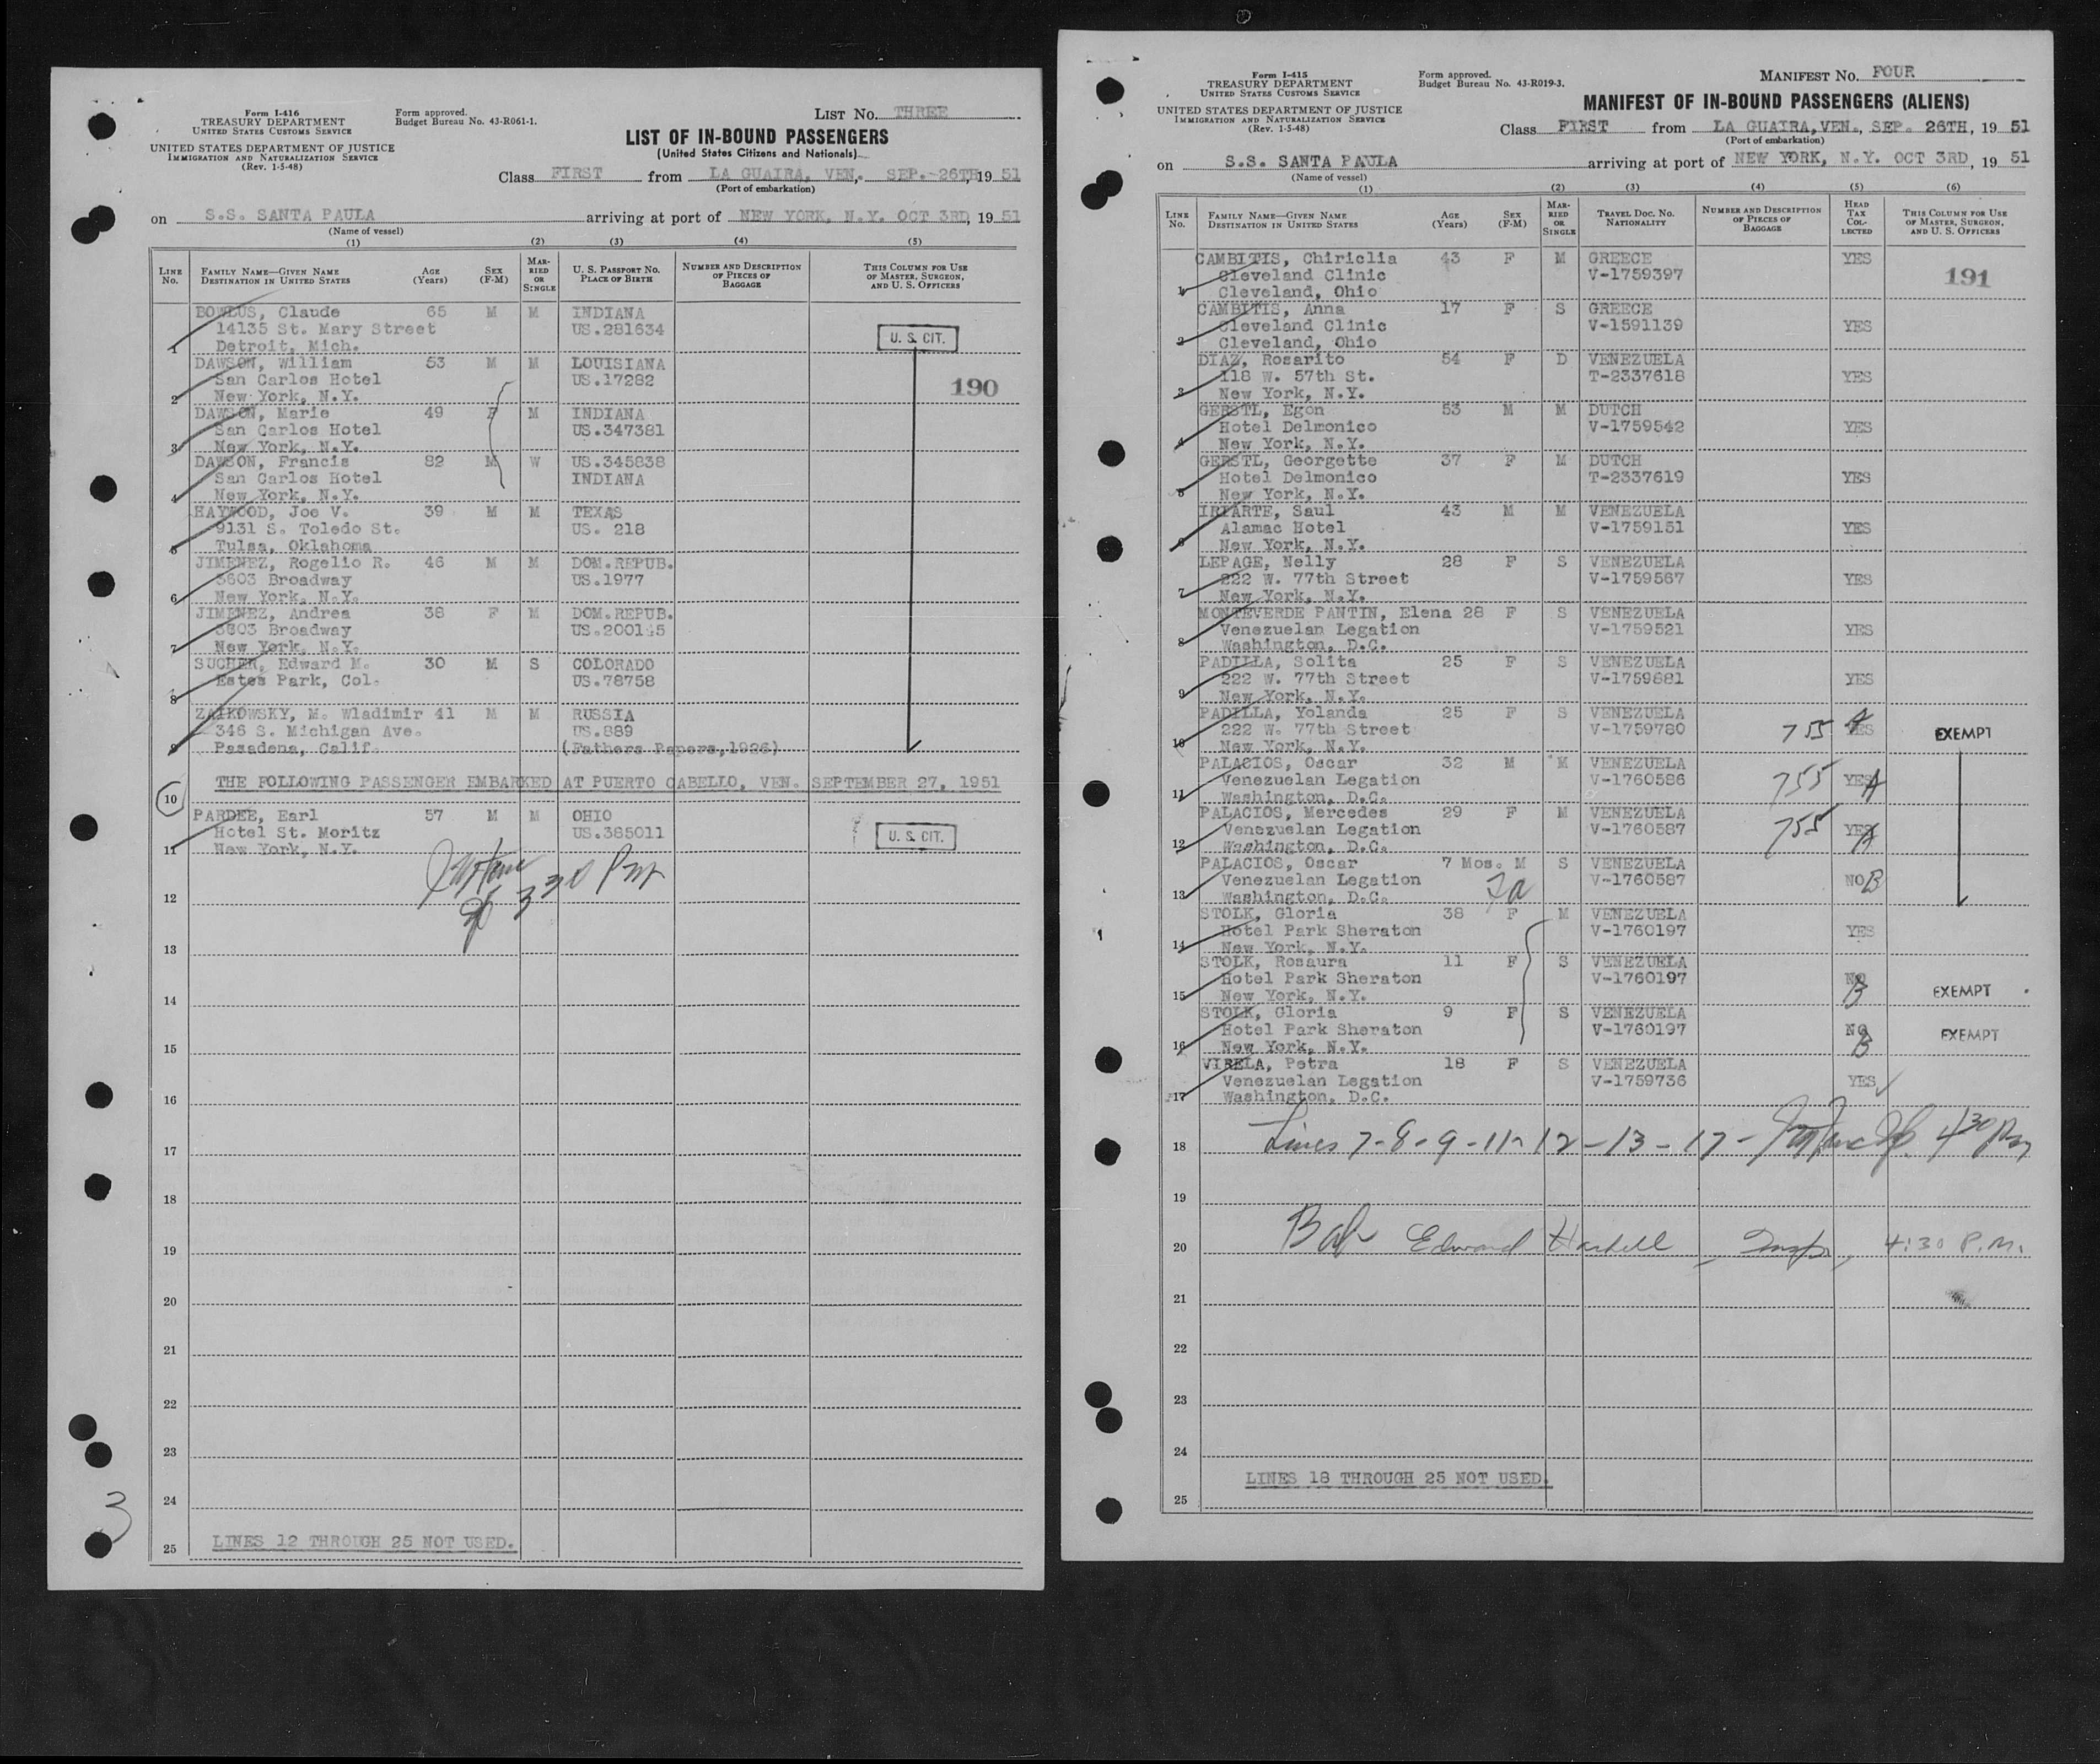 Form I-416
TREASURY DEPARTMENT
UNITED STATES CUSTOMS SERVICE
UNITED STATES DEPARTMENT OF JUSTICE
IMMIGRATION AND NATURALIZATION SERVICE
(Rev. 1-5-48)
Form approved.
Budget Bureau No. 43-R061-1.
LIST No. THREE
LIST OF IN-BOUND PASSENGERS
(United States Citizens and Nationals)
Class FIRST from LA GUAIRA, VEN., SEP. 26TH, 1951
(Port of embarkation)
on S.S. SANTA PAULA arriving at port of NEW YORK, N.Y. OCT 3RD, 1951
(Name of vessel)
(1) (2) (3) (4) (5)
LINE No. FAMILY NAME—GIVEN NAME DESTINATION IN UNITED STATES AGE (Years) SEX (F-M) MARRIED OR SINGLE U. S. PASSPORT NO. PLACE OF BIRTH NUMBER AND DESCRIPTION OF PIECES OF BAGGAGE THIS COLUMN FOR USE OF MASTER, SURGEON, AND U. S. OFFICERS
BOWBUS, Claude 65 M M INDIANA
14135 St. Mary Street US.281634 U. S. CIT.
1 Detroit, Mich.
DAWSON, William 53 M M LOUISIANA
San Carlos Hotel US.17282 190
2 New York, N.Y.
DAWSON, Marie 49 F M INDIANA
San Carlos Hotel US.347381
3 New York, N.Y.
DAWSON, Francis 82 M W US.345838
San Carlos Hotel INDIANA
4 New York, N.Y.
HAYWOOD, Joe V. 39 M M TEXAS
9131 S. Toledo St. US. 218
5 Tulsa, Oklahoma
JIMENEZ, Rogelio R. 46 M M DOM.REPUB.
3603 Broadway US.1977
6 New York, N.Y.
JIMENEZ, Andrea 38 F M DOM.REPUB.
3603 Broadway US.200145
7 New York, N.Y.
SUCHER, Edward M. 30 M S COLORADO
Estes Park, Col. US.78758
8
ZAIKOWSKY, M. Wladimir 41 M M RUSSIA
346 S. Michigan Ave. US.889
9 Pasadena, Calif. (Fathers Papers, 1926)
THE FOLLOWING PASSENGER EMBARKED AT PUERTO CABELLO, VEN. SEPTEMBER 27, 1951
10
PARDEE, Earl 57 M M OHIO
Hotel St. Moritz US.385011 U. S. CIT.
11 New York, N.Y.
3 30 PM
12
13
14
15
16
17
18
19
20
21
22
23
24
25 LINES 12 THROUGH 25 NOT USED.
3
Form I-415
TREASURY DEPARTMENT
UNITED STATES CUSTOMS SERVICE
UNITED STATES DEPARTMENT OF JUSTICE
IMMIGRATION AND NATURALIZATION SERVICE
(Rev. 1-5-48)
Form approved.
Budget Bureau No. 43-R019-3.
MANIFEST No. FOUR
MANIFEST OF IN-BOUND PASSENGERS (ALIENS)
Class FIRST from LA GUAIRA, VEN., SEP. 26TH, 1951
(Port of embarkation)
on S.S. SANTA PAULA arriving at port of NEW YORK, N.Y. OCT 3RD, 1951
(Name of vessel)
(1) (2) (3) (4) (5) (6)
LINE No. FAMILY NAME—GIVEN NAME DESTINATION IN UNITED STATES AGE (Years) SEX (F-M) MARRIED OR SINGLE TRAVEL DOC. NO. NATIONALITY NUMBER AND DESCRIPTION OF PIECES OF BAGGAGE HEAD TAX COLLECTED THIS COLUMN FOR USE OF MASTER, SURGEON, AND U. S. OFFICERS
CAMBITIS, Chiriclia 43 F M GREECE YES
Cleveland Clinic V-1759397 191
1 Cleveland, Ohio
CAMBITIS, Anna 17 F S GREECE
Cleveland Clinic V-1591139 YES
2 Cleveland, Ohio
DIAZ, Rosarito 54 F D VENEZUELA
118 W. 57th St. T-2337618 YES
3 New York, N.Y.
GERSTL, Egon 53 M M DUTCH
Hotel Delmonico V-1759542 YES
4 New York, N.Y.
GERSTL, Georgette 37 F M DUTCH
Hotel Delmonico T-2337619 YES
5 New York, N.Y.
IRIARTE, Saul 43 M M VENEZUELA
Alamac Hotel V-1759151 YES
6 New York, N.Y.
LEPAGE, Nelly 28 F S VENEZUELA
222 W. 77th Street V-1759567 YES
7 New York, N.Y.
MONTEVERDE PANTIN, Elena 28 F S VENEZUELA
Venezuelan Legation V-1759521 YES
8 Washington, D.C.
PADILLA, Solita 25 F S VENEZUELA
222 W. 77th Street V-1759681 YES
9 New York, N.Y.
PADILLA, Yolanda 25 F S VENEZUELA
222 W. 77th Street V-1759780 755 YES A EXEMPT
10 New York, N.Y.
PALACIOS, Oscar 32 M M VENEZUELA
Venezuelan Legation V-1760586 755 YES A
11 Washington, D.C.
PALACIOS, Mercedes 29 F M VENEZUELA
Venezuelan Legation V-1760587 755 YES A
12 Washington, D.C.
PALACIOS, Oscar 7 Mos. M S VENEZUELA
Venezuelan Legation V-1760587 NO B
13 Washington, D.C.
STOLK, Gloria 38 F M VENEZUELA
Hotel Park Sheraton V-1760197 YES
14 New York, N.Y.
STOLK, Rosaura 11 F S VENEZUELA
Hotel Park Sheraton V-1760197 NO B EXEMPT
15 New York, N.Y.
STOLK, Gloria 9 F S VENEZUELA
Hotel Park Sheraton V-1760197 NO B EXEMPT
16 New York, N.Y.
VIRELA, Petra 18 F S VENEZUELA
Venezuelan Legation V-1759736 YES
17 Washington, D.C.
18 Lines 7-8-9-11-12-13-17- 4 30 PM
19
20 Bal Edward Haskell, Insp, 4:30 P.M.
21
22
23
24
LINES 18 THROUGH 25 NOT USED.
25